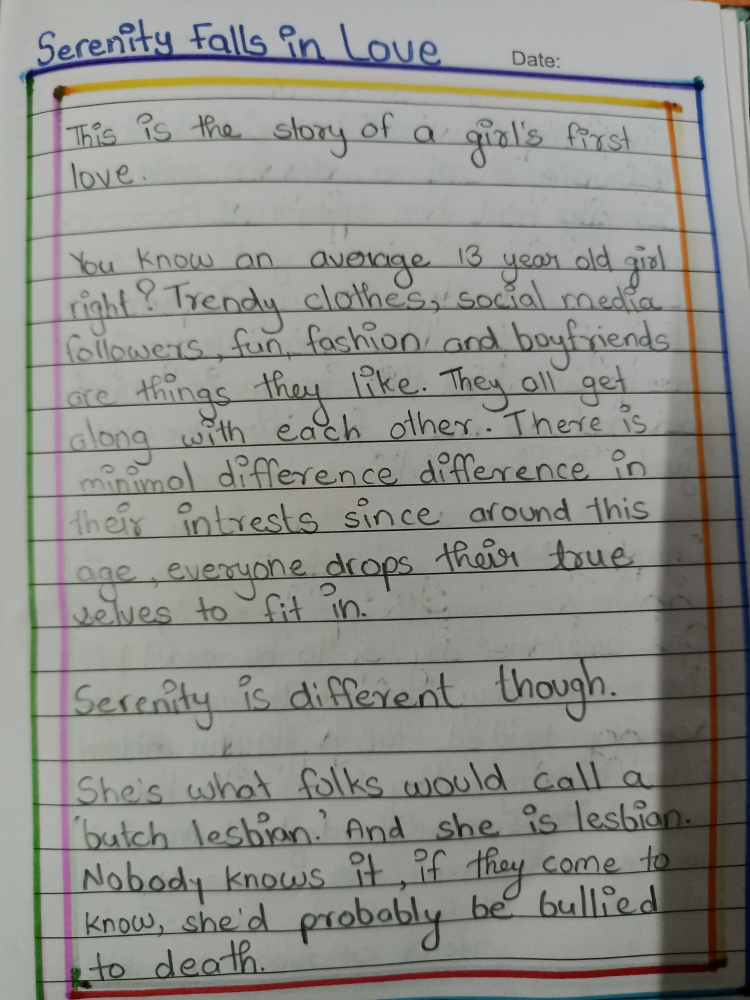 Serenity Falls in Love
Date:
This is the story of a girl's first
love.
You know an average 13 year old girl
right? Trendy clothes, social media
followers, fun, fashion and boyfriends
are things they like. They all get
along with each other. There is
minimal difference difference in
their intrests since around this
age, everyone drops their true
selves to fit in.
Serenity is different though.
She's what folks would call a
'butch lesbian.' And she is lesbian.
Nobody knows it, if they come to
know, she'd probably be bullied
to death.